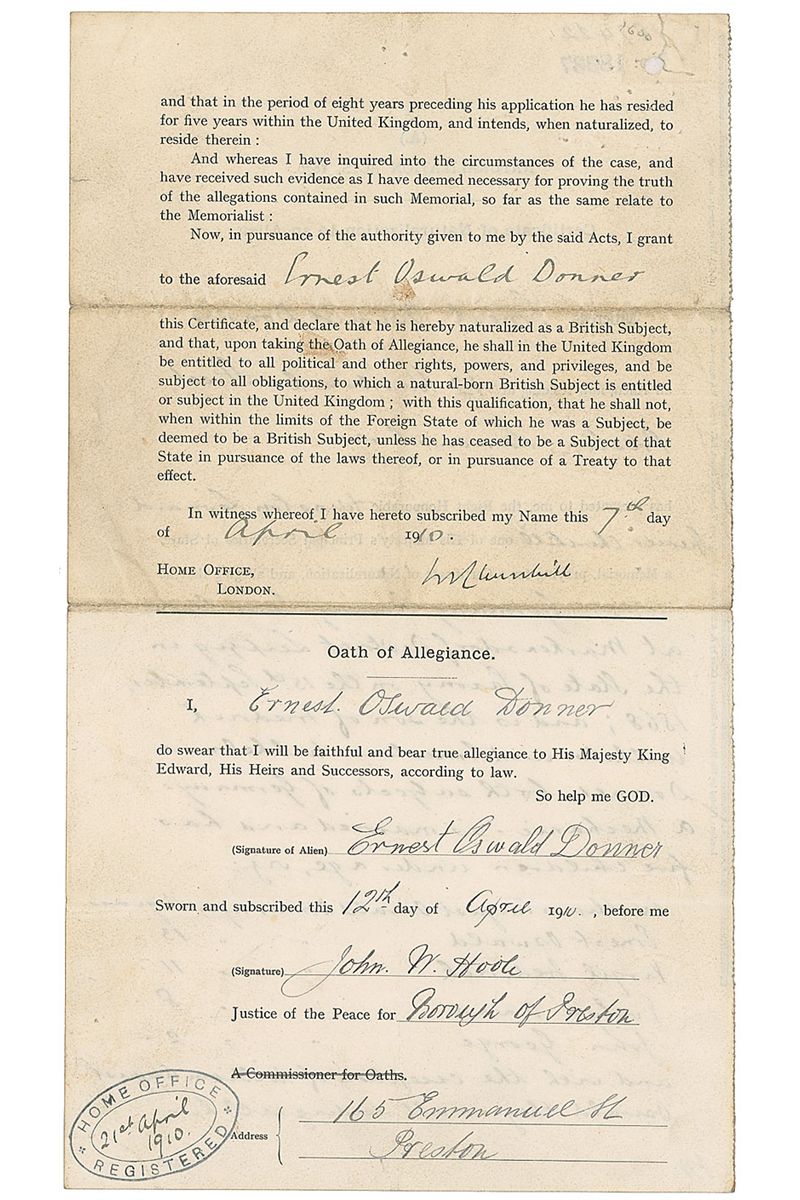 and that in the period of eight years preceding his application he has resided
for five years within the United Kingdom, and intends, when naturalized, to
reside therein :
And whereas I have inquired into the circumstances of the case, and
have received such evidence as I have deemed necessary for proving the truth
of the allegations contained in such Memorial, so far as the same relate to
the Memorialist :
Now, in pursuance of the authority given to me by the said Acts, I grant
to the aforesaid Ernest Oswald Donner
this Certificate, and declare that he is hereby naturalized as a British Subject,
and that, upon taking the Oath of Allegiance, he shall in the United Kingdom
be entitled to all political and other rights, powers, and privileges, and be
subject to all obligations, to which a natural-born British Subject is entitled
or subject in the United Kingdom ; with this qualification, that he shall not,
when within the limits of the Foreign State of which he was a Subject, be
deemed to be a British Subject, unless he has ceased to be a Subject of that
State in pursuance of the laws thereof, or in pursuance of a Treaty to that
effect.
In witness whereof I have hereto subscribed my Name this 7th day
of April 1910.
HOME OFFICE,
LONDON.
WSChurchill
Oath of Allegiance.
I, Ernest Oswald Donner
do swear that I will be faithful and bear true allegiance to His Majesty King
Edward, His Heirs and Successors, according to law.
So help me GOD.
(Signature of Alien) Ernest Oswald Donner
Sworn and subscribed this 12th day of April 1910. , before me
(Signature) John. W. Hoole
Justice of the Peace for Borough of Preston
A Commissioner for Oaths.
Address 165 Emmanuel St
Preston
HOME OFFICE
21st April
1910.
REGISTERED